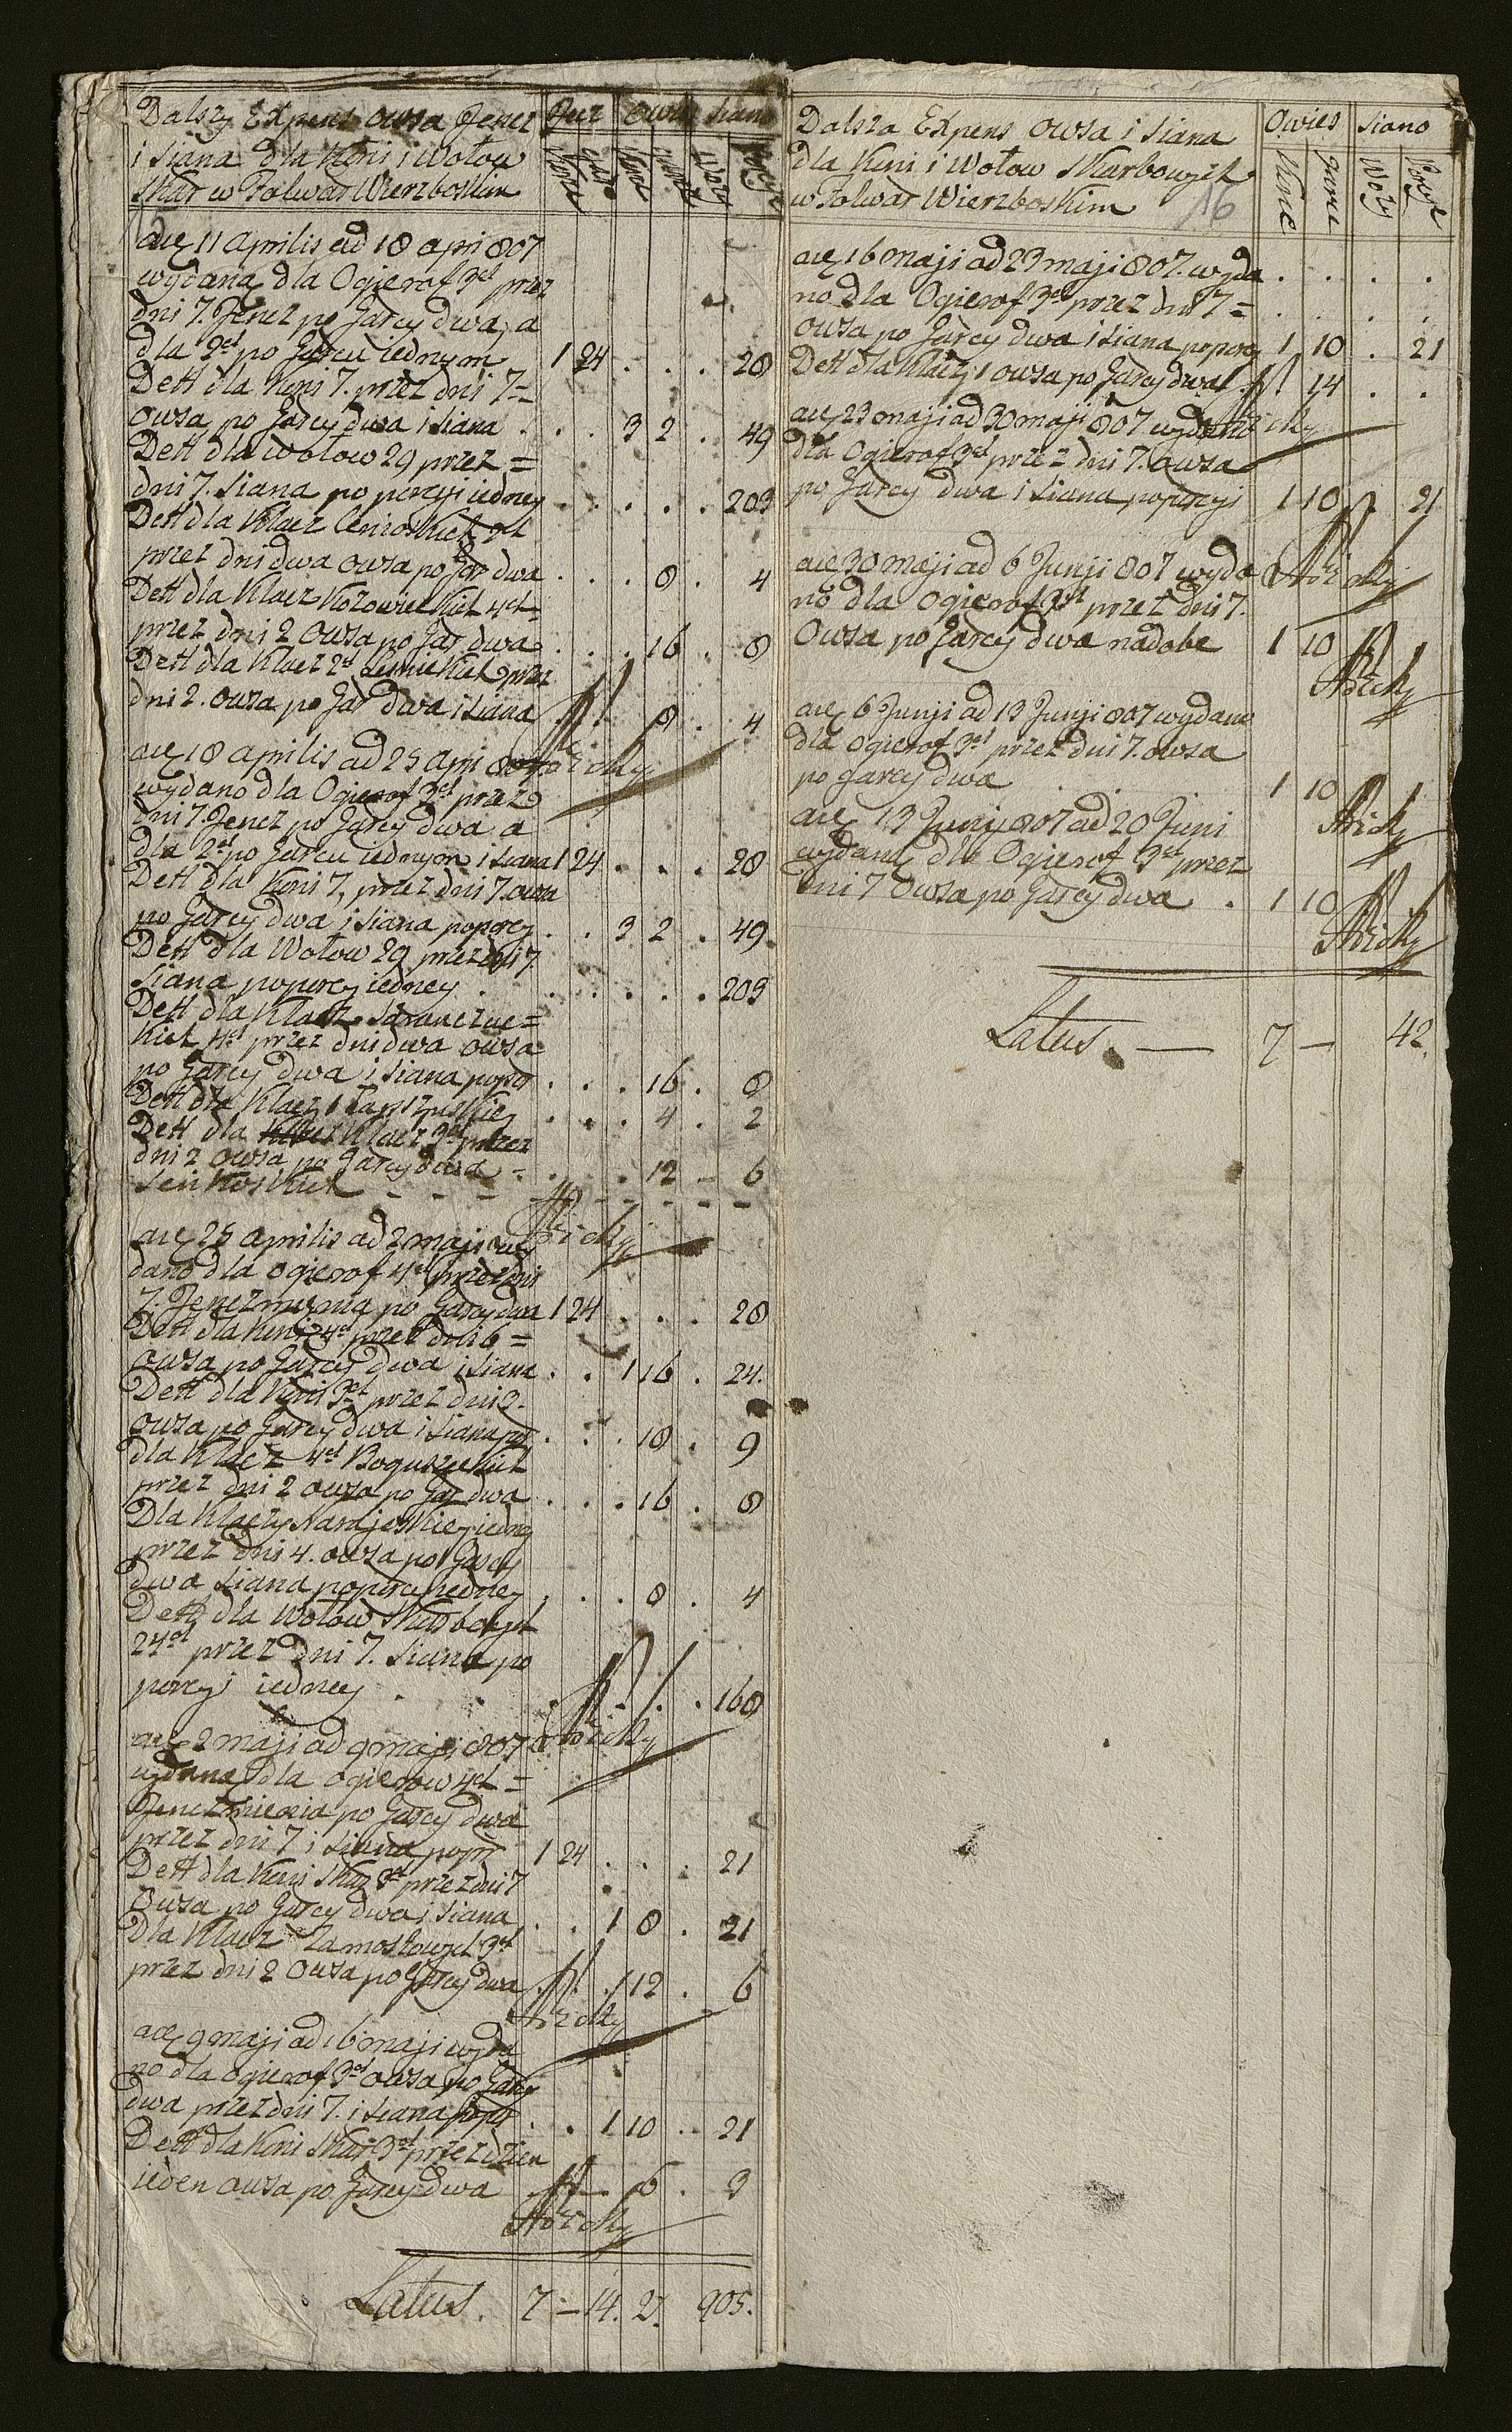 Dalszy Expens owsa Jencz
i Siana dla Koni i Wołow
Skar w Folwar Wierzboskim
Jecz Owies Siano
Korce garce Korce garce Wozy Porcye
a 11 Aprilis ad 18 Apri 807
wydaną dla Ogierof 3ch przez
dni 7. Jencz po Garcy dwa, a
dla 2ch po Garcu iednym 1 24 . . . 28
Dett dla Koni 7. przez dni 7 =
Owsa po Garcy dwa i Siana . . . 3 2 . 49
Dett dla Wołow 29 przez =
dni 7. Siana po porcyi iedney . . . . . 203
Dett dla Klacz 2ch
przez dni dwa owsa po Gar dwa . . . 8 . 4
Dett dla Klacz Kozowieckich 4ch
przez dni 2 Owsa po Gar dwa . . . 16 . 8
Dett dla Klacz 2ch przez
dni 2. Owsa po Gar dwa i Siana 8 . 4
a 18 Aprilis ad 25 Apri 807
wydano dla Ogierof 3ch przez
dni 7. Jencz po Garcy dwa a
dla 2ch po Garcu iednym i Siana 1 24 . . . 28
Dett dla Koni 7, przez dni 7. owsa
po Garcy dwa i Siana poporcy . . 3 2 . 49.
Dett dla Wołow 29 przez dni 7
Siana poporcy iedney . . . . . . 203
Dett dla Klacz =
kich 4ch przez dni dwa owsa
po Garcy dwa i Siana popor . . . 16 . 8
Dett dla Klaczy 1 . . . 4 . 2
Dett dla Klacz 3ch przez
dni 2 owsa po Garcy dwa = . . 12 - 6
Sienkoskich - - - - - -
a 25 Aprilis ad 2 maji wy
dano dla Ogierof 4ch przez dni
7. Jenczmienia po Garcy dwa 1 24 . . . 28
Dett dla Koni 4ch przez dni 6 =
Owsa po Garcy dwa i Siana . . 1 16 . 24.
Dett dla Koni 3ch przez dni 3.
Owsa po Garcy dwa i Siana por . . . 18 . 9
dla Klacz 4ch Boguszeckich
przez dni 2 owsa po Gar dwa . . . 16 . 8
Dla Klaczy Narajoskiey iedney
przez dni 4. owsa po Garcy
dwa Siana poporcy iedney . . . 8 . 4
Dett dla Wołow Skarbowych
24ch przez dni 7. Siana po
porcyi iedney . . . . 168
a 2 maji ad 9 maji 807
wydaną dla Ogierow 4ch =
Jenczmienia po Garcy dwa
przez dni 7 i Siana popor 1 24 . . . 21
Dett dla Koni Skar 3ch przez dni 7
Owsa po Garcy dwa i Siana . . 1 8 . 21
Dla Klacz Zamostowych 3ch
przez dni 2 Owsa po Garcy dwa . 12 . 6
a 9 maji ad 16 maji wyda
no dla Ogierof 3ch owsa po Garcy
dwa przez dni 7. i Siana popor . . 1 10 . . 21
Dett dla Koni Skar 3ch przez dzien
ieden owsa po Garcy dwa 6 . 3
Latus. 7 - 14. 2. 905.
Dalsza Expens Owsa i Siana
dla Kuni i Wołow Skarbowych
w Folwar Wierzboskim
16
Owies Siano
Korce garce Wozy Porcye
a 16 maji ad 23 maji 807. wyda . . . .
no dla Ogierof 3ch przez dni 7 = . . . .
Owsa po Garcy dwa i Siana poporcy 1 10 . 21
Dett dla Klaczy 1 owsa po Garcy dwa 14 . .
a 23 maji ad 30 maji 807 wydano
dla Ogierof 3ch przez dni 7. owsa
po Garcy dwa i Siana poporcyi 1 10 21
a 30 maji ad 6 Junji 807 wyda
no dla Ogierof 3ch przez dni 7.
Owsa po Garcy dwa nadobe 1 10
a 6 Junji ad 13 Junji 807 wydano
dla Ogierof 3ch przez dni 7. owsa
po garcy dwa 1 10
a 13 Junji 807 ad 20 Juni
wydaną dla Ogierof 3ch przez
dni 7 Owsa po Garcy dwa . 1 10
Latus. — 7 — 42.